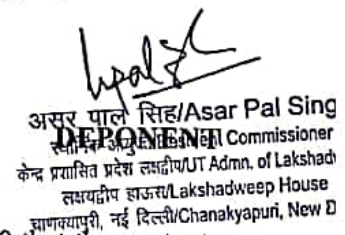 असर पाल सिंह/Asar Pal Sing
DEPONENT
Commissioner
केन्द्र प्रशासित प्रदेश लक्षद्वीप/UT Admn. of Lakshad
लक्षयद्वीप हाऊस/Lakshadweep House
चाणक्यापुरी, नई दिल्ली/Chanakyapuri, New D